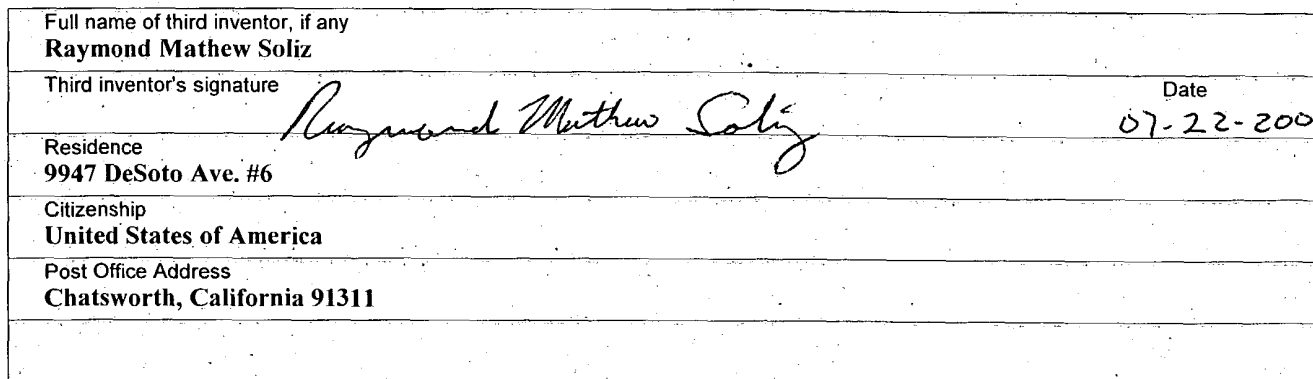 Full name of third inventor, if any
Raymond Mathew Soliz
Third inventor's signature
Date
Raymond Mathew Soliz
07-22-200
Residence
9947 DeSoto Ave. #6
Citizenship
United States of America
Post Office Address
Chatsworth, California 91311